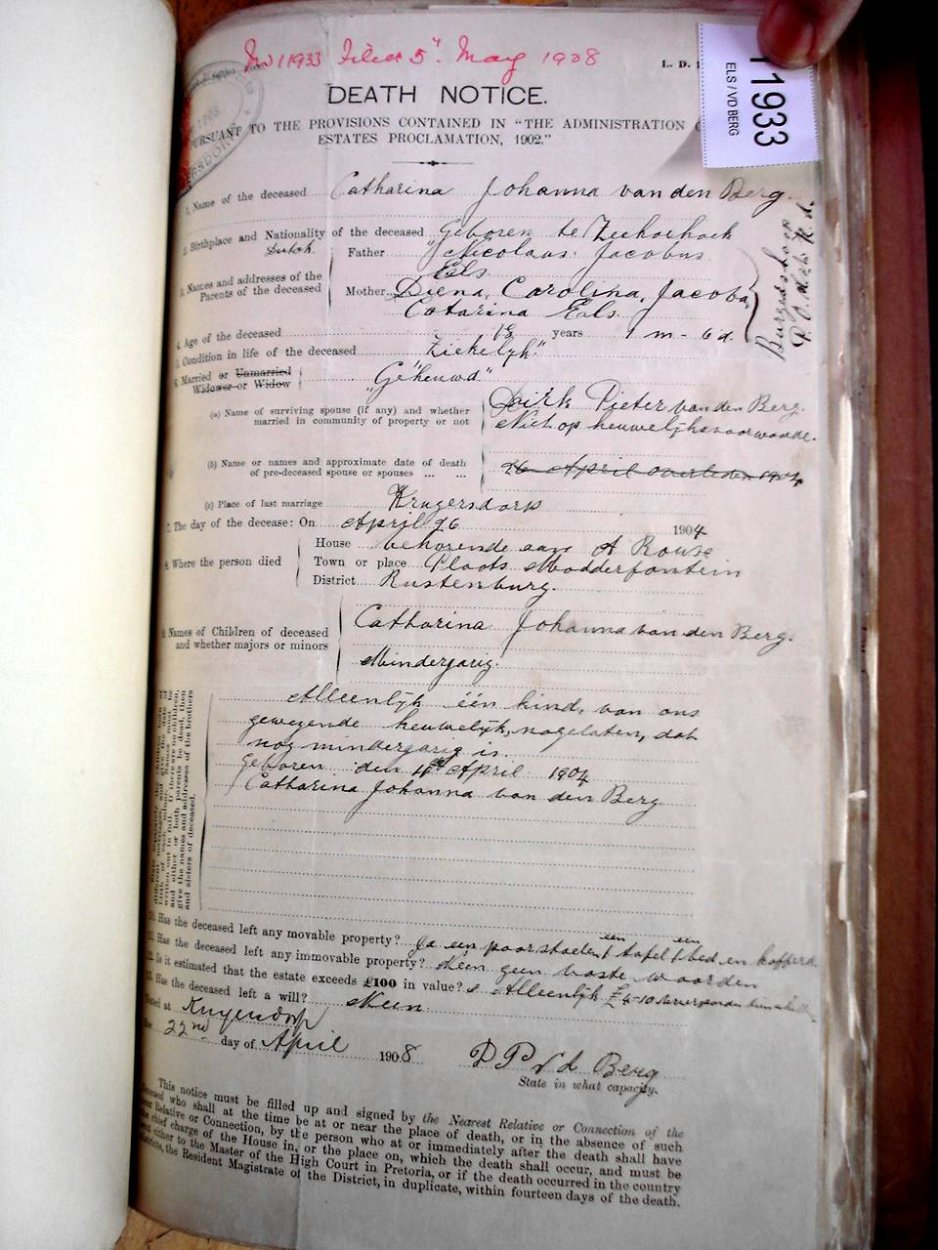 No 11933 Filed 5th May 1908
L. D.
11933
ELS / VD BERG
DEATH NOTICE.
PURSUANT TO THE PROVISIONS CONTAINED IN "THE ADMINISTRATION
ESTATES PROCLAMATION, 1902."
1. Name of the deceased Catharina Johanna van den Berg.
2. Birthplace and Nationality of the deceased Geboren te
Dutch. Father Nicolaus Jacobus
Els
3. Names and addresses of the Parents of the deceased
Mother Diena, Carolina, Jacoba,
Catarina Els
P. O.
4. Age of the deceased years 1 m - 6 d.
5. Condition in life of the deceased Ziekelyk"
6. Married or Unmarried
Widower or Widow
"Gehuwd"
(a) Name of surviving spouse (if any) and whether married in community of property or not
Dirk Pieter van den Berg.
Niet op heuwelyksvoorwaarde.
(b) Name or names and approximate date of death of pre-deceased spouse or spouses ... ...
26 April overleden 1904
(c) Place of last marriage Krugersdorp
7. The day of the decease: On April 26 1904
8. Where the person died
House behorende aan A Rouse
Town or place Plaats Modderfontein
District Rustenburg.
9. Names of Children of deceased and whether majors or minors
Catharina Johanna van den Berg.
Minderjarig.
Alleenlyk één kind, van ons
gewezende heuwelyk, nagelaten, dat
nog minderjarig is.
Geboren den April 1904
Catharina Johanna van den Berg
written out in full. If there are no children,
and either or both parents be dead, then
give the names and addresses of the brothers
and sisters of deceased.
10. Has the deceased left any movable property? Ja een paar stoelen, een tafel, een bed en
11. Has the deceased left any immovable property? Neen geen vaste
12. Is it estimated that the estate exceeds £100 in value? Alleenlyk £
13. Has the deceased left a will? Neen
Dated at Krugersdorp
the 22nd day of April 1908
D P v d Berg
State in what capacity.
This notice must be filled up and signed by the Nearest Relative or Connection of the
deceased who shall at the time be at or near the place of death, or in the absence of such
near Relative or Connection, by the person who at or immediately after the death shall have
the chief charge of the House in, or the place on, which the death shall occur, and must be
sent either to the Master of the High Court in Pretoria, or if the death occurred in the country
Districts, the Resident Magistrate of the District, in duplicate, within fourteen days of the death.